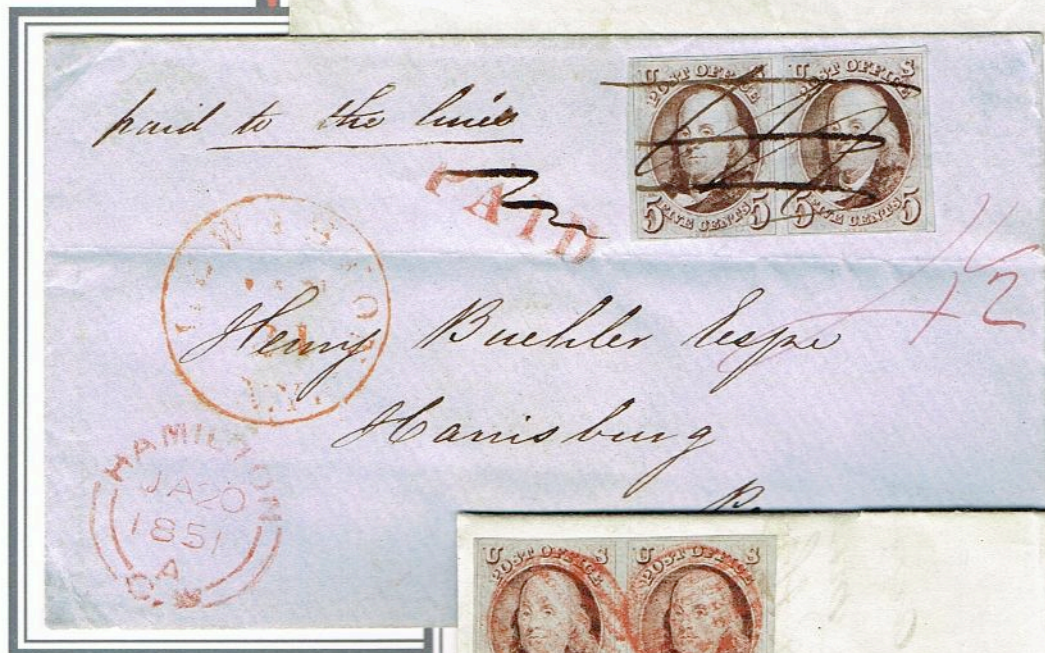 paid to the lines
PAID
U S
POST OFFICE
5 FIVE CENTS 5
U S
POST OFFICE
5 FIVE CENTS 5
4½
LEWISTON
JAN
21
N.Y.
Henry Buehler Esqre
Harrisburg
Pa
HAMILTON
JA 20
1851
C. W
A
U S
POST OFFICE
U S
POST OFFICE